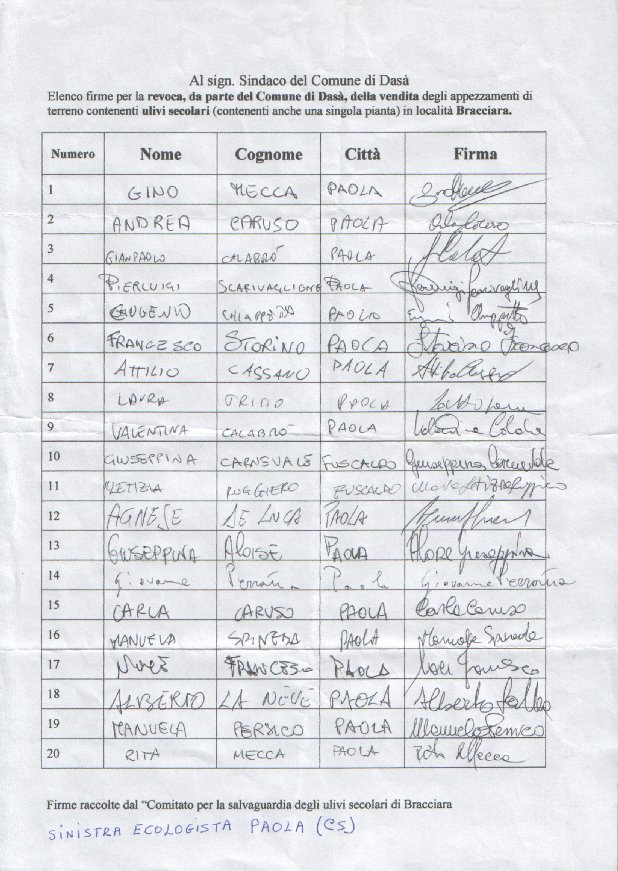 Al sign. Sindaco del Comune di Dasà
Elenco firme per la revoca, da parte del Comune di Dasà, della vendita degli appezzamenti di
terreno contenenti ulivi secolari (contenenti anche una singola pianta) in località Bracciara.
Numero Nome Cognome Città Firma
1 GINO MECCA PAOLA
2 ANDREA CARUSO PAOLA
3 GIANPAOLO CALABRÓ PAOLA
4 PIERLUIGI SCARIVAGLIONE PAOLA
5 EUGENIO CHIAPPETTA
6 FRANCESCO STORINO PAOLA Storino Francesco
7 ATTILIO CASSANO PAOLA
8 LAURA PAOLA
9 VALENTINA CALABRÓ PAOLA
10 GIUSEPPINA CARNEVALE FUSCALDO Giuseppina Carnevale
11 LETIZIA RUGGIERO FUSCALDO
12 AGNESE DE LUCA PAOLA
13 GIUSEPPINA ALOISE PAOLA Aloise Giuseppina
14 Giovanna Perrotta Paola Giovanna Perrotta
15 CARLA CARUSO PAOLA Carla Caruso
16 MANUELA SPINEDA PAOLA
17 FRANCESCO PAOLA
18 ALBERTO LA NEVE PAOLA Alberto
19 MANUELA PERSICO PAOLA Manuela Persico
20 RITA MECCA PAOLA Rita Mecca
Firme raccolte dal “Comitato per la salvaguardia degli ulivi secolari di Bracciara
SINISTRA ECOLOGISTA PAOLA (CS)